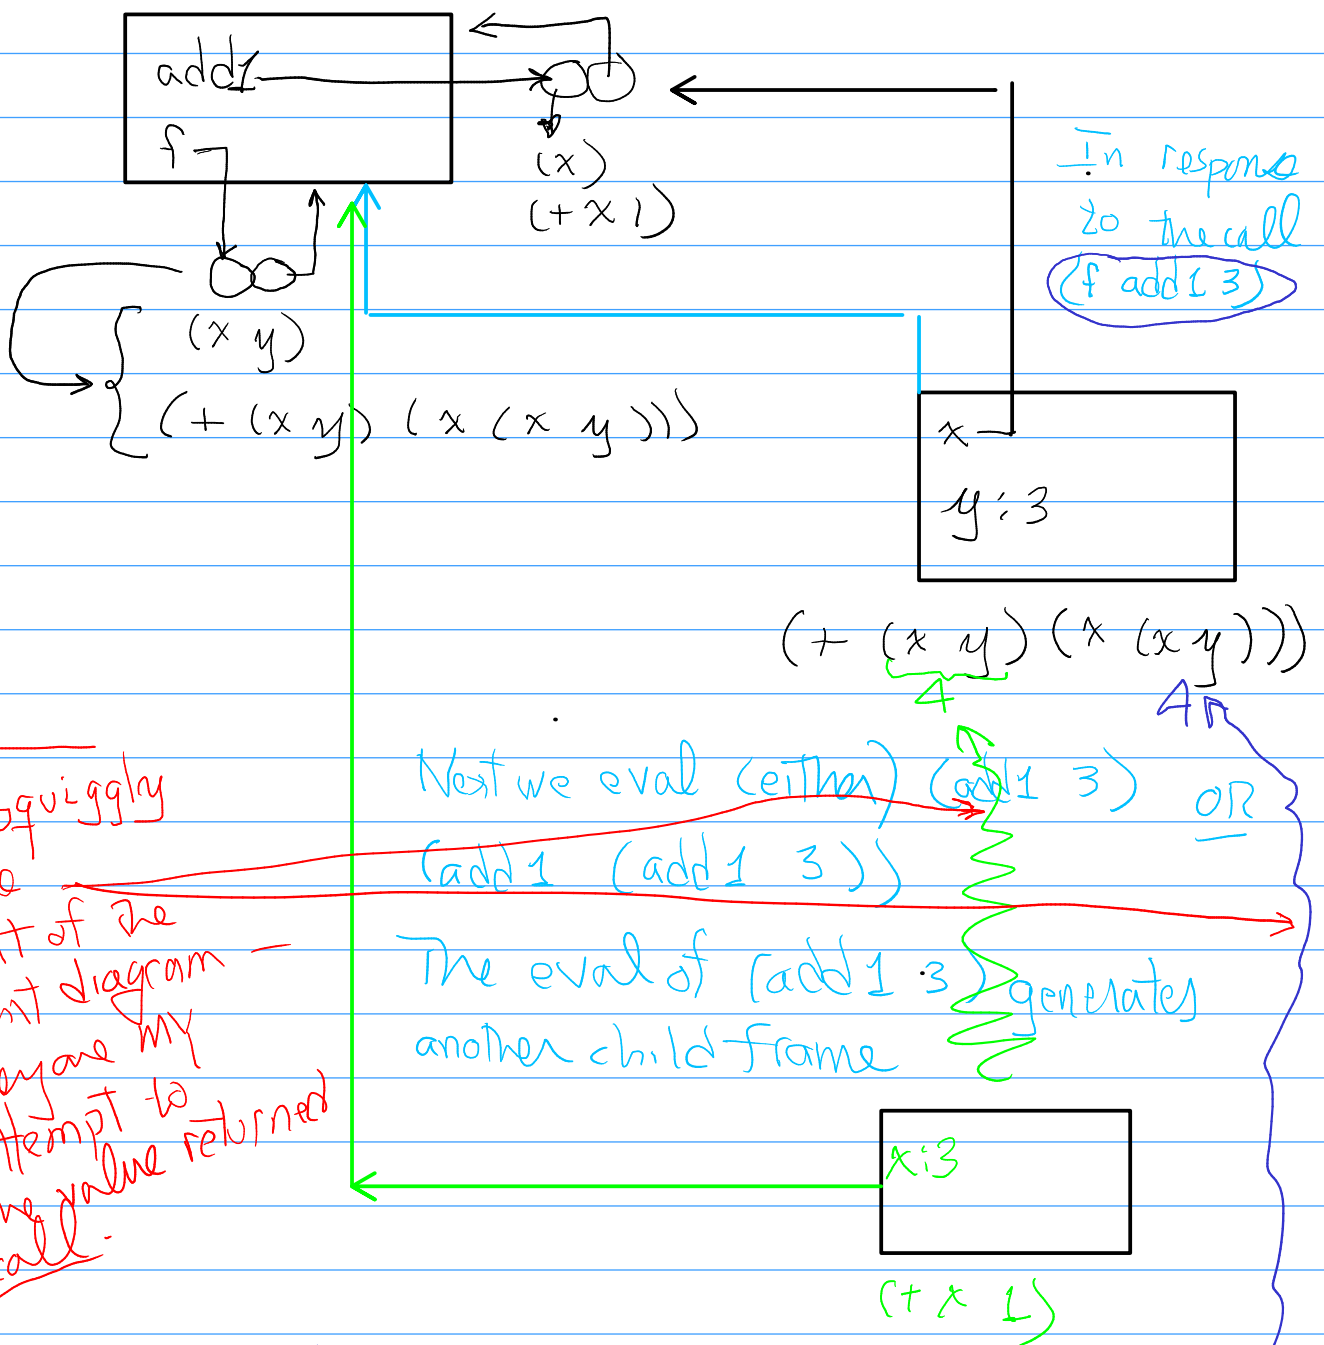 add1
f
(x)
(+ x 1)
(x y)
(+ (x y) (x (x y)))
In response
to the call
(f add1 3)
x
y:3
(+ (x y) (x (x y)))
4
4
Next we eval (either) (add1 3) OR
(add1 (add1 3))
The eval of (add1 3) generates
another child frame
squiggly
of the
diagram —
are my
attempt to
value returned
call.
x:3
(+ x 1)